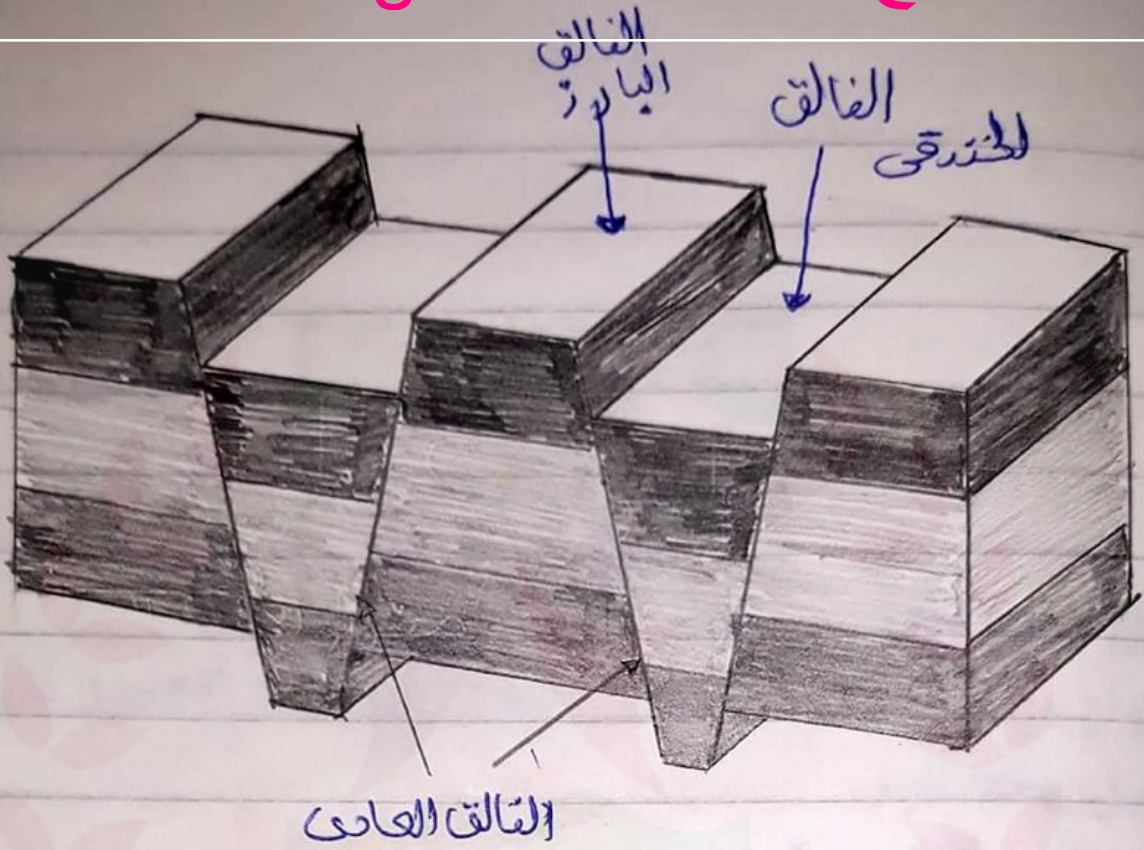 الفالق
البارز
الفالق
الخندقي
الفالق العادي